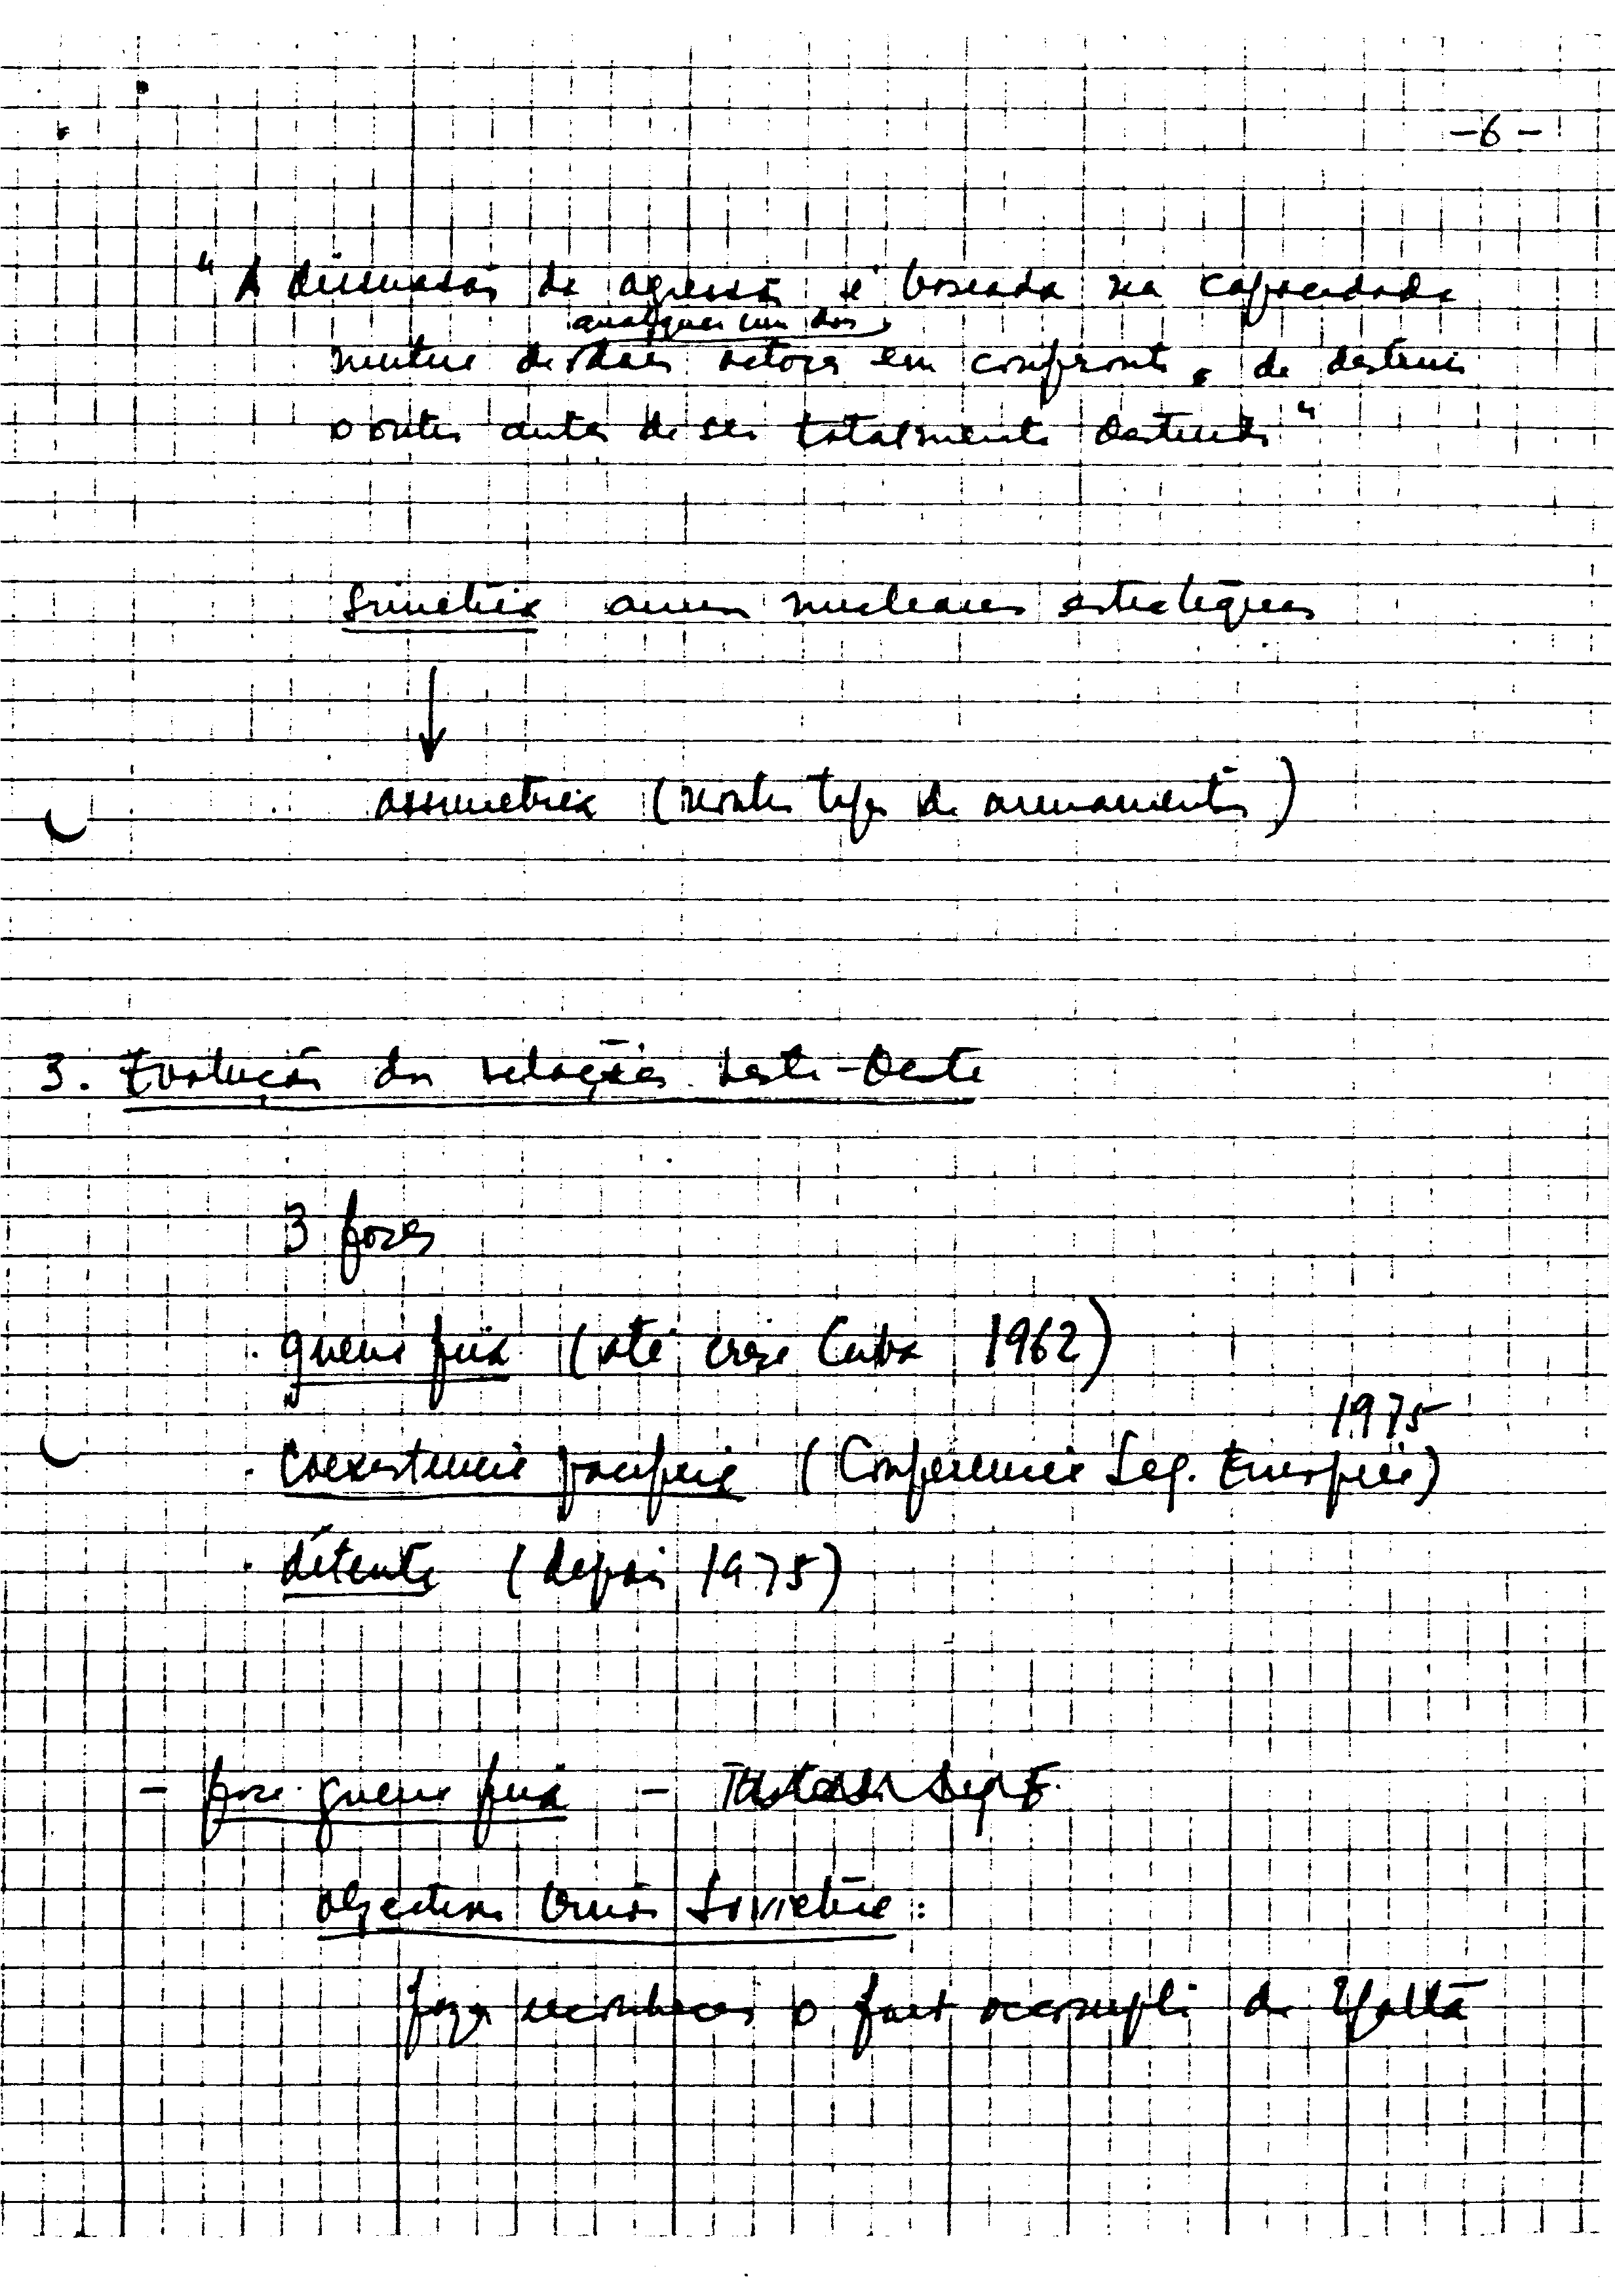 -6-
"A dissuasão da agressão é baseada na capacidade
qualquer um dos
mútua de dois actores em confronto, de destruir
o outro antes de ser totalmente destruído"
Simetria armas nucleares estratégicas
↓
assimetria (noutros tipos de armamentos)
3. Evolução das relações Leste-Oeste
3 fases
. guerra fria (até crise Cuba 1962)
1975
. coexistência pacífica (Conferência Seg. Europeia)
. détente (depois 1975)
- fase guerra fria -
objectivos União Soviética:
fazer reconhecer o fait accompli de Yalta